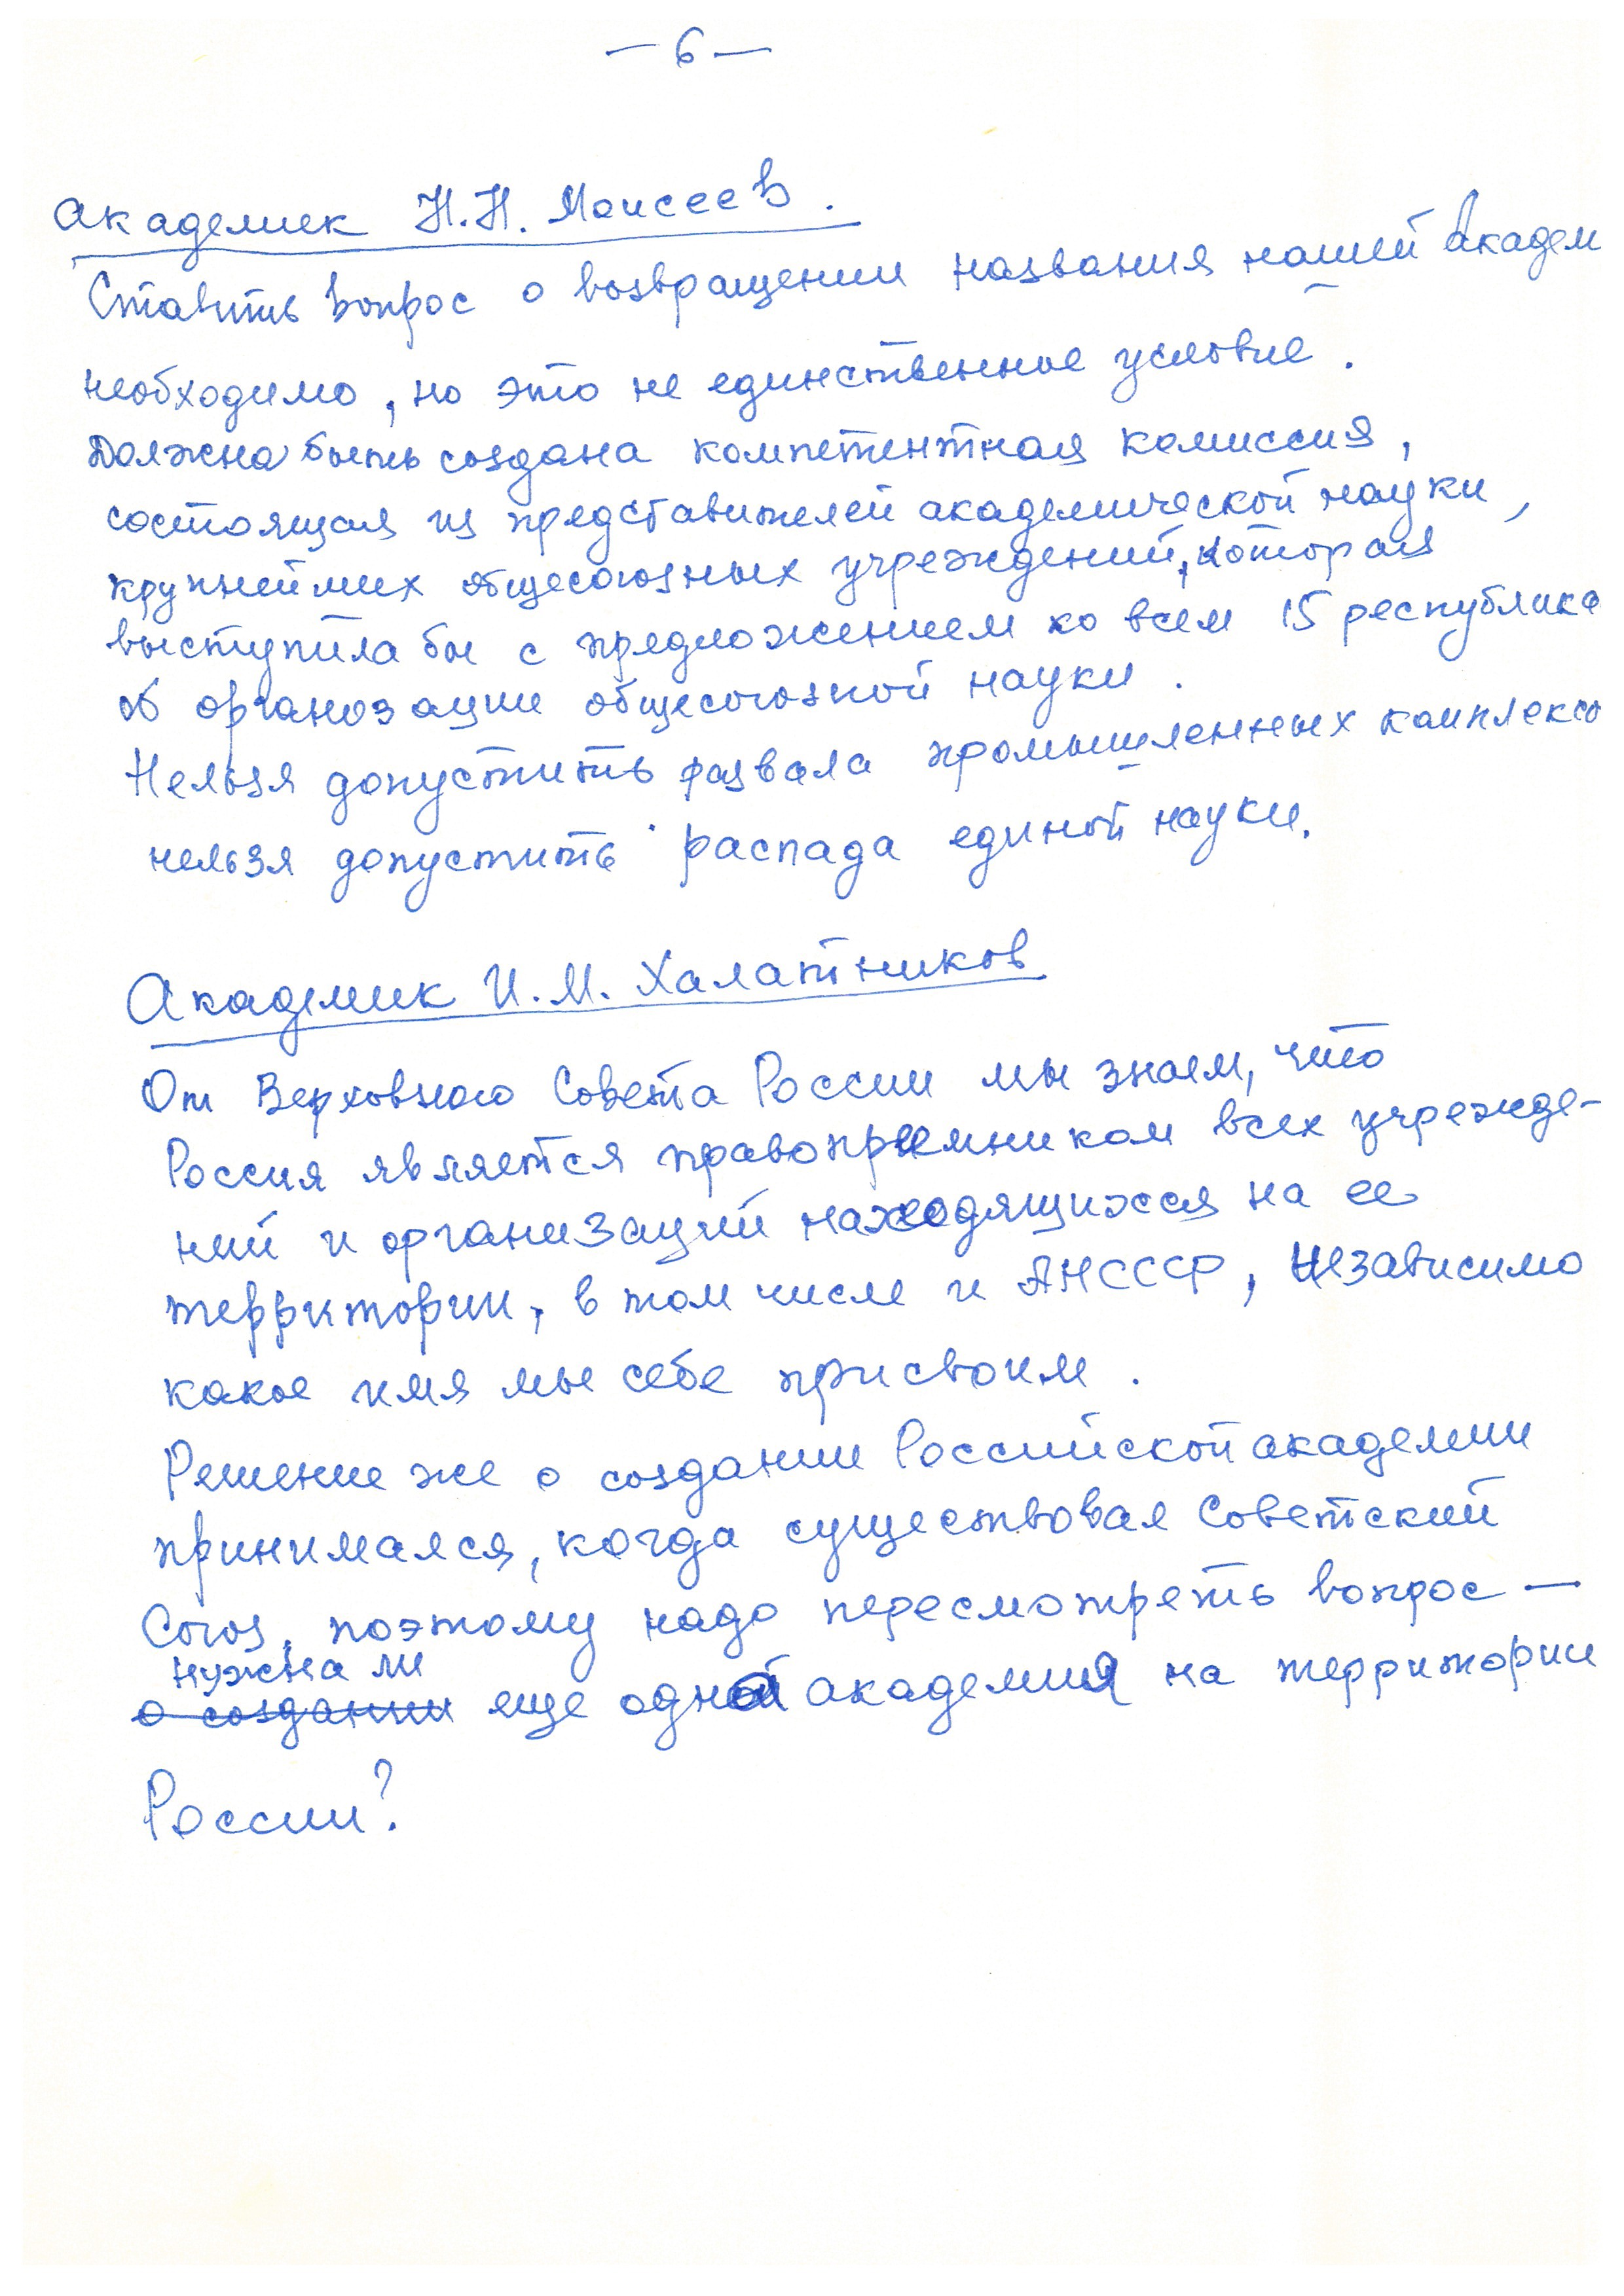 — 6 —
Академик Н.Н. Моисеев.
Ставить вопрос о возвращении названия нашей Академ
необходимо, но это не единственное условие.
Должна быть создана компетентная комиссия,
состоящая из представителей академической науки,
крупнейших общесоюзных учреждений, которая
выступила бы с предложением ко всем 15 республика
об органозации общесоюзной науки.
Нельзя допустить развала промышленных комплексо
нельзя допустить распада единой науки.
Академик И.М. Халатников
От Верховного Совета России мы знаем, что
Россия является правоприемником всех учрежде-
ний и организаций находящихся на ее
территории, в том числе и АНСССР, независимо
какое имя мы себе присвоим.
Решение же о создании Российской академии
принимался, когда существовал Советский
Союз, поэтому надо пересмотреть вопрос —
нужна ли
о создании еще одной академия на территории
России?